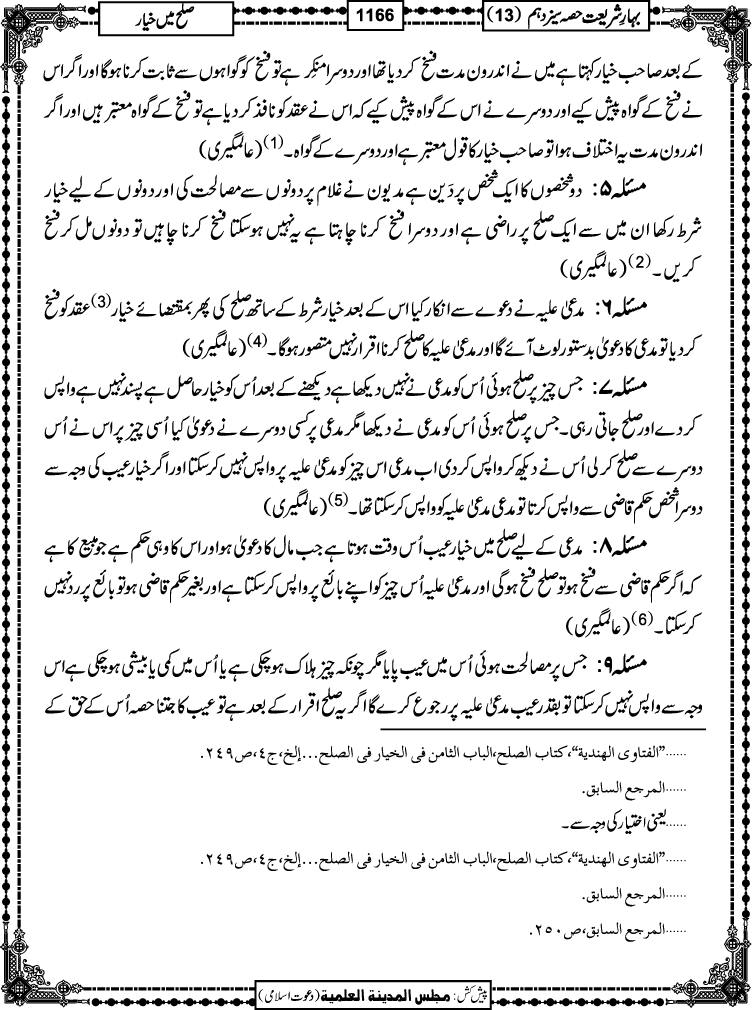 بہارِ شریعت حصہ سیزدہم (13)
1166
صلح میں خیار
کے بعد صاحب خیار کہتا ہے میں نے اندرون مدت فسخ کر دیا تھا اور دوسرا منکِر ہے تو فسخ کو گواہوں سے ثابت کرنا ہوگا اور اگر اس
نے فسخ کے گواہ پیش کیے اور دوسرے نے اس کے گواہ پیش کیے کہ اس نے عقد کو نافذ کر دیا ہے تو فسخ کے گواہ معتبر ہیں اور اگر
اندرون مدت یہ اختلاف ہوا تو صاحب خیار کا قول معتبر ہے اور دوسرے کے گواہ۔(1) (عالمگیری)
مسئلہ ۵: دو شخصوں کا ایک شخص پر دَین ہے مدیون نے غلام پر دونوں سے مصالحت کی اور دونوں کے لیے خیار
شرط رکھا ان میں سے ایک صلح پر راضی ہے اور دوسرا فسخ کرنا چاہتا ہے یہ نہیں ہوسکتا فسخ کرنا چاہیں تو دونوں مل کر فسخ
کریں۔(2) (عالمگیری)
مسئلہ ۶: مدعیٰ علیہ نے دعوے سے انکار کیا اس کے بعد خیار شرط کے ساتھ صلح کی پھر بمقتضائے خیار(3) عقد کو فسخ
کر دیا تو مدعی کا دعویٰ بدستور لوٹ آئے گا اور مدعیٰ علیہ کا صلح کرنا اقرار نہیں متصور ہوگا۔(4) (عالمگیری)
مسئلہ ۷: جس چیز پر صلح ہوئی اُس کو مدعی نے نہیں دیکھا ہے دیکھنے کے بعد اُس کو خیار حاصل ہے پسند نہیں ہے واپس
کر دے اور صلح جاتی رہی۔ جس پر صلح ہوئی اُس کو مدعی نے دیکھا مگر مدعی پر کسی دوسرے نے دعویٰ کیا اُسی چیز پر اس نے اُس
دوسرے سے صلح کر لی اُس نے دیکھ کر واپس کر دی اب مدعی اس چیز کو مدعیٰ علیہ پر واپس نہیں کرسکتا اور اگر خیار عیب کی وجہ سے
دوسرا شخص حکم قاضی سے واپس کرتا تو مدعی مدعیٰ علیہ کو واپس کرسکتا تھا۔(5) (عالمگیری)
مسئلہ ۸: مدعی کے لیے صلح میں خیار عیب اُس وقت ہوتا ہے جب مال کا دعویٰ ہو اور اس کا وہی حکم ہے جو مبیع کا ہے
کہ اگر حکم قاضی سے فسخ ہو تو صلح فسخ ہوگی اور مدعیٰ علیہ اُس چیز کو اپنے بائع پر واپس کرسکتا ہے اور بغیر حکم قاضی ہو تو بائع پر رد نہیں
کرسکتا۔(6) (عالمگیری)
مسئلہ ۹: جس پر مصالحت ہوئی اُس میں عیب پایا مگر چونکہ چیز ہلاک ہوچکی ہے یا اُس میں کمی یا بیشی ہوچکی ہے اس
وجہ سے واپس نہیں کرسکتا تو بقدر عیب مدعیٰ علیہ پر رجوع کرے گا اگر یہ صلح اقرار کے بعد ہے تو عیب کا جتنا حصہ اُس کے حق کے
......"الفتاوی الهندیة"، کتاب الصلح، الباب الثامن فی الخیار فی الصلح...إلخ، ج٤، ص٢٤٩.
......المرجع السابق.
......یعنی اختیار کی وجہ سے۔
......"الفتاوی الهندیة"، کتاب الصلح، الباب الثامن فی الخیار فی الصلح...إلخ، ج٤، ص٢٤٩.
......المرجع السابق.
......المرجع السابق، ص٢٥٠.
پیش کش: مجلس المدینة العلمیة (دعوت اسلامی)